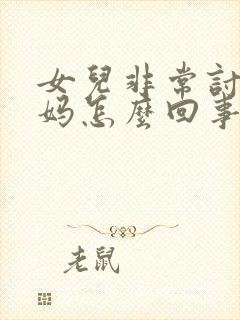 女兒非常討
媽怎麼回事
老鼠